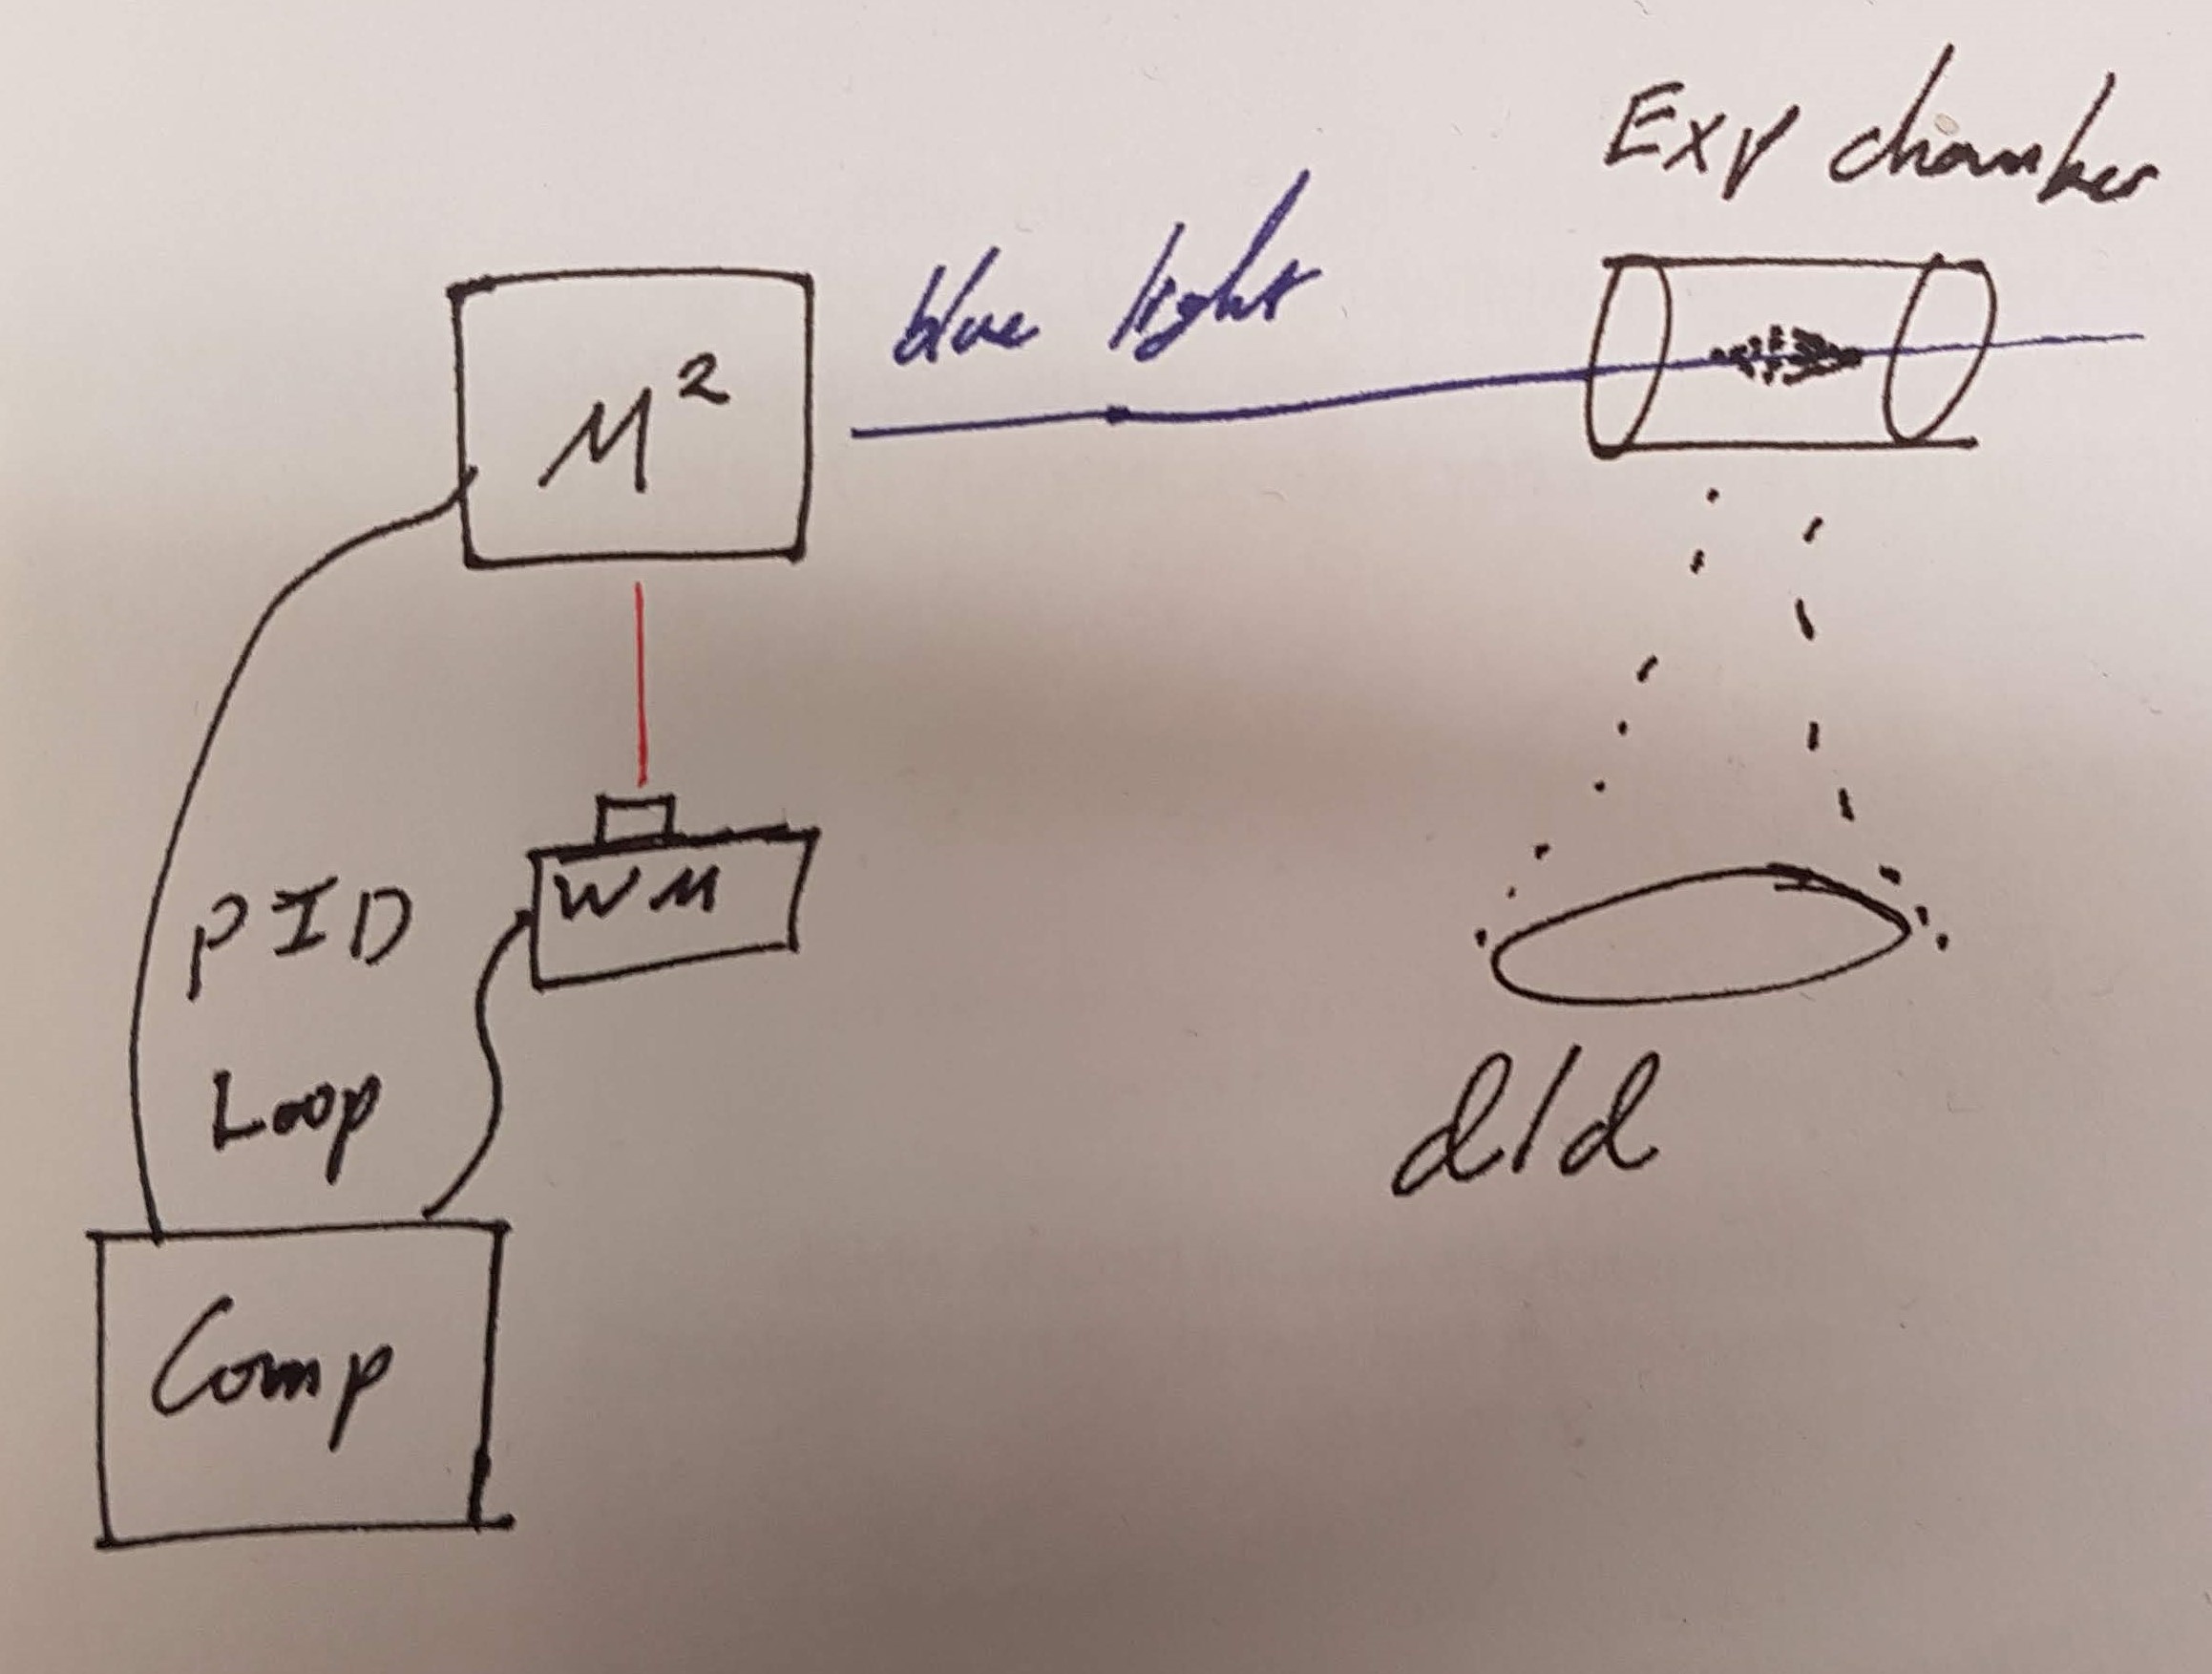 Exp chamber
blue light
M²
WM
PID
Loop
d/d
Comp